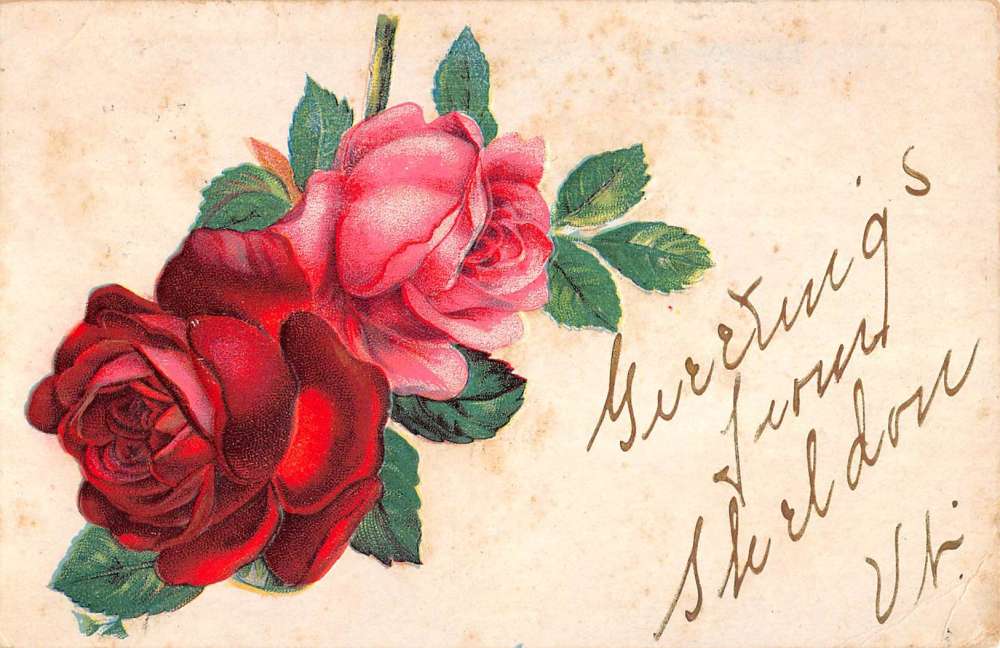 Greetings
from
Sheldon
Vt.